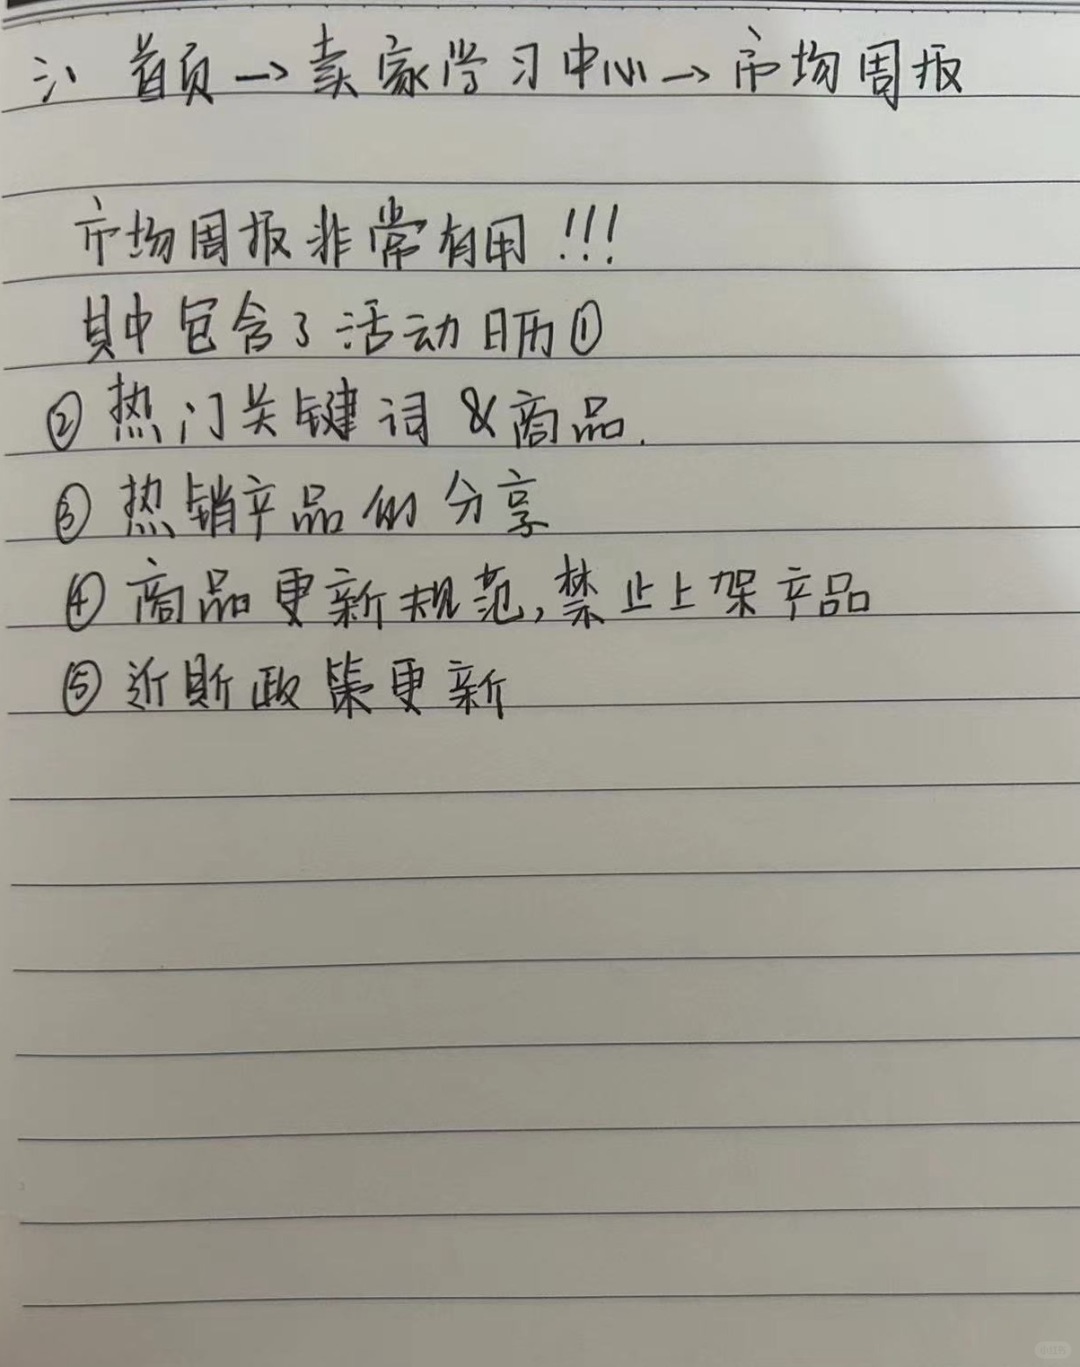 三、首页→卖家学习中心→市场周报
市场周报非常有用!!!
其中包含了活动日历①
②热门关键词&商品.
③热销产品的分享
④商品更新规范,禁止上架产品
⑤近期政策更新
小红书